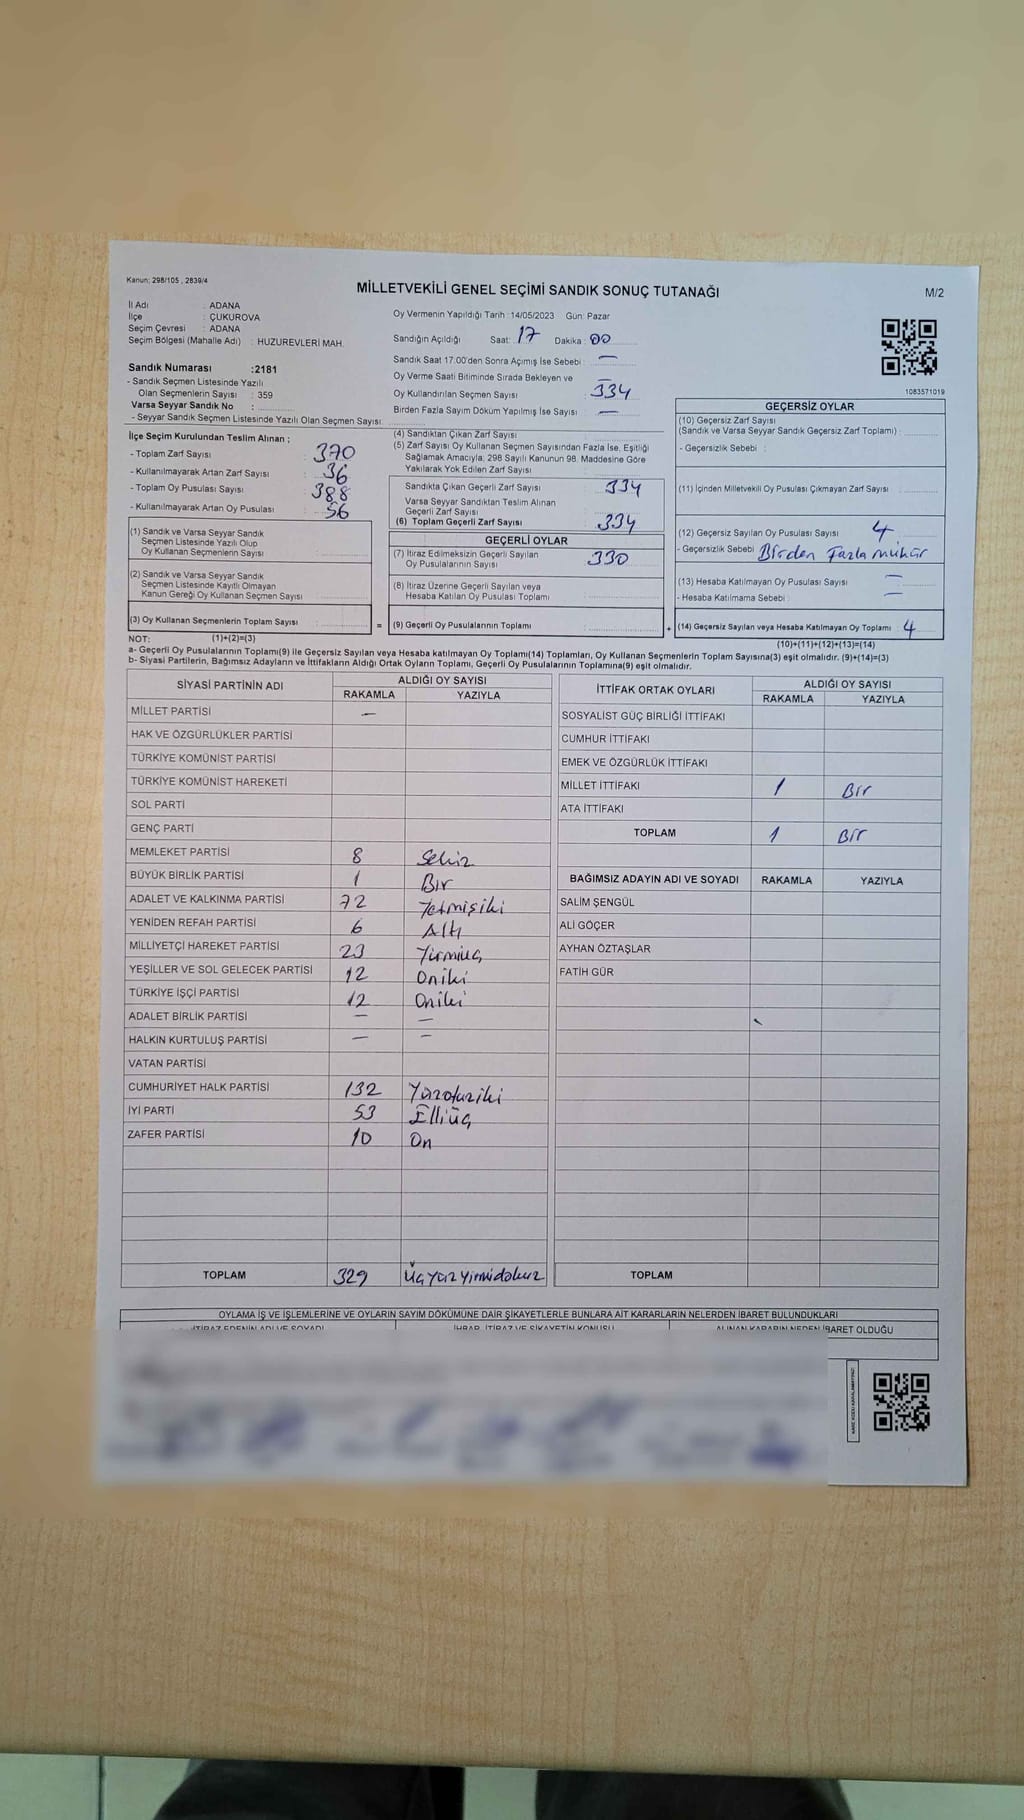 Kanun: 298/105 , 2839/4
MİLLETVEKİLİ GENEL SEÇİMİ SANDIK SONUÇ TUTANAĞI
M/2
İl Adı : ADANA
İlçe : ÇUKUROVA
Seçim Çevresi : ADANA
Seçim Bölgesi (Mahalle Adı) : HUZUREVLERİ MAH.
Sandık Numarası :2181
- Sandık Seçmen Listesinde Yazılı
Olan Seçmenlerin Sayısı : 359
Varsa Seyyar Sandık No :
- Seyyar Sandık Seçmen Listesinde Yazılı Olan Seçmen Sayısı :
Oy Vermenin Yapıldığı Tarih :14/05/2023 Gün: Pazar
Sandığın Açıldığı Saat: 17 Dakika: 00
Sandık Saat 17:00'den Sonra Açımış İse Sebebi : —
Oy Verme Saati Bitiminde Sırada Bekleyen ve —
Oy Kullandırılan Seçmen Sayısı 334
Birden Fazla Sayım Döküm Yapılmış İse Sayısı —
1083571019
İlçe Seçim Kurulundan Teslim Alınan ;
- Toplam Zarf Sayısı : 370
- Kullanılmayarak Artan Zarf Sayısı : 36
- Toplam Oy Pusulası Sayısı : 388
- Kullanılmayarak Artan Oy Pusulası : 56
(1) Sandık ve Varsa Seyyar Sandık
Seçmen Listesinde Yazılı Olup
Oy Kullanan Seçmenlerin Sayısı
(2) Sandık ve Varsa Seyyar Sandık
Seçmen Listesinde Kayıtlı Olmayan
Kanun Gereği Oy Kullanan Seçmen Sayısı
(3) Oy Kullanan Seçmenlerin Toplam Sayısı =
(1)+(2)=(3)
(4) Sandıktan Çıkan Zarf Sayısı
(5) Zarf Sayısı Oy Kullanan Seçmen Sayısından Fazla İse, Eşitliği
Sağlamak Amacıyla; 298 Sayılı Kanunun 98. Maddesine Göre
Yakılarak Yok Edilen Zarf Sayısı
Sandıkta Çıkan Geçerli Zarf Sayısı 334
Varsa Seyyar Sandıktan Teslim Alınan
Geçerli Zarf Sayısı
(6) Toplam Geçerli Zarf Sayısı 334
GEÇERLİ OYLAR
(7) İtiraz Edilmeksizin Geçerli Sayılan
Oy Pusulalarının Sayısı 330
(8) İtiraz Üzerine Geçerli Sayılan veya
Hesaba Katılan Oy Pusulası Toplamı
(9) Geçerli Oy Pusulalarının Toplamı +
GEÇERSİZ OYLAR
(10) Geçersiz Zarf Sayısı
(Sandık ve Varsa Seyyar Sandık Geçersiz Zarf Toplamı) :
- Geçersizlik Sebebi :
(11) İçinden Milletvekili Oy Pusulası Çıkmayan Zarf Sayısı
(12) Geçersiz Sayılan Oy Pusulası Sayısı 4
- Geçersizlik Sebebi Birden Fazla mühür
(13) Hesaba Katılmayan Oy Pusulası Sayısı —
- Hesaba Katılmama Sebebi —
(14) Geçersiz Sayılan veya Hesaba Katılmayan Oy Toplamı 4
(10)+(11)+(12)+(13)=(14)
NOT:
a- Geçerli Oy Pusulalarının Toplamı(9) ile Geçersiz Sayılan veya Hesaba katılmayan Oy Toplamı(14) Toplamları, Oy Kullanan Seçmenlerin Toplam Sayısına(3) eşit olmalıdır. (9)+(14)=(3)
b- Siyasi Partilerin, Bağımsız Adayların ve İttifakların Aldığı Ortak Oyların Toplamı, Geçerli Oy Pusulalarının Toplamına(9) eşit olmalıdır.
SİYASİ PARTİNİN ADI ALDIĞI OY SAYISI
RAKAMLA YAZIYLA
MİLLET PARTİSİ —
HAK VE ÖZGÜRLÜKLER PARTİSİ
TÜRKİYE KOMÜNİST PARTİSİ
TÜRKİYE KOMÜNİST HAREKETİ
SOL PARTİ
GENÇ PARTİ
MEMLEKET PARTİSİ 8 Sekiz
BÜYÜK BİRLİK PARTİSİ 1 Bir
ADALET VE KALKINMA PARTİSİ 72 Yetmişiki
YENİDEN REFAH PARTİSİ 6 Altı
MİLLİYETÇİ HAREKET PARTİSİ 23 Yirmiüç
YEŞİLLER VE SOL GELECEK PARTİSİ 12 Oniki
TÜRKİYE İŞÇİ PARTİSİ 12 Oniki
ADALET BİRLİK PARTİSİ — —
HALKIN KURTULUŞ PARTİSİ — —
VATAN PARTİSİ
CUMHURİYET HALK PARTİSİ 132 Yüzotuziki
İYİ PARTİ 53 Elliüç
ZAFER PARTİSİ 10 On
TOPLAM 329 Üçyüzyirmidokuz
İTTİFAK ORTAK OYLARI ALDIĞI OY SAYISI
RAKAMLA YAZIYLA
SOSYALİST GÜÇ BİRLİĞİ İTTİFAKI
CUMHUR İTTİFAKI
EMEK VE ÖZGÜRLÜK İTTİFAKI
MİLLET İTTİFAKI 1 Bir
ATA İTTİFAKI
TOPLAM 1 Bir
BAĞIMSIZ ADAYIN ADI VE SOYADI RAKAMLA YAZIYLA
SALİM ŞENGÜL
ALİ GÖÇER
AYHAN ÖZTAŞLAR
FATİH GÜR
TOPLAM
OYLAMA İŞ VE İŞLEMLERİNE VE OYLARIN SAYIM DÖKÜMÜNE DAİR ŞİKAYETLERLE BUNLARA AİT KARARLARIN NELERDEN İBARET BULUNDUKLARI
İTİRAZ EDENİN ADI VE SOYADI İHBAR, İTİRAZ VE ŞİKAYETİN KONUSU ALINAN KARARIN NEDEN İBARET OLDUĞU